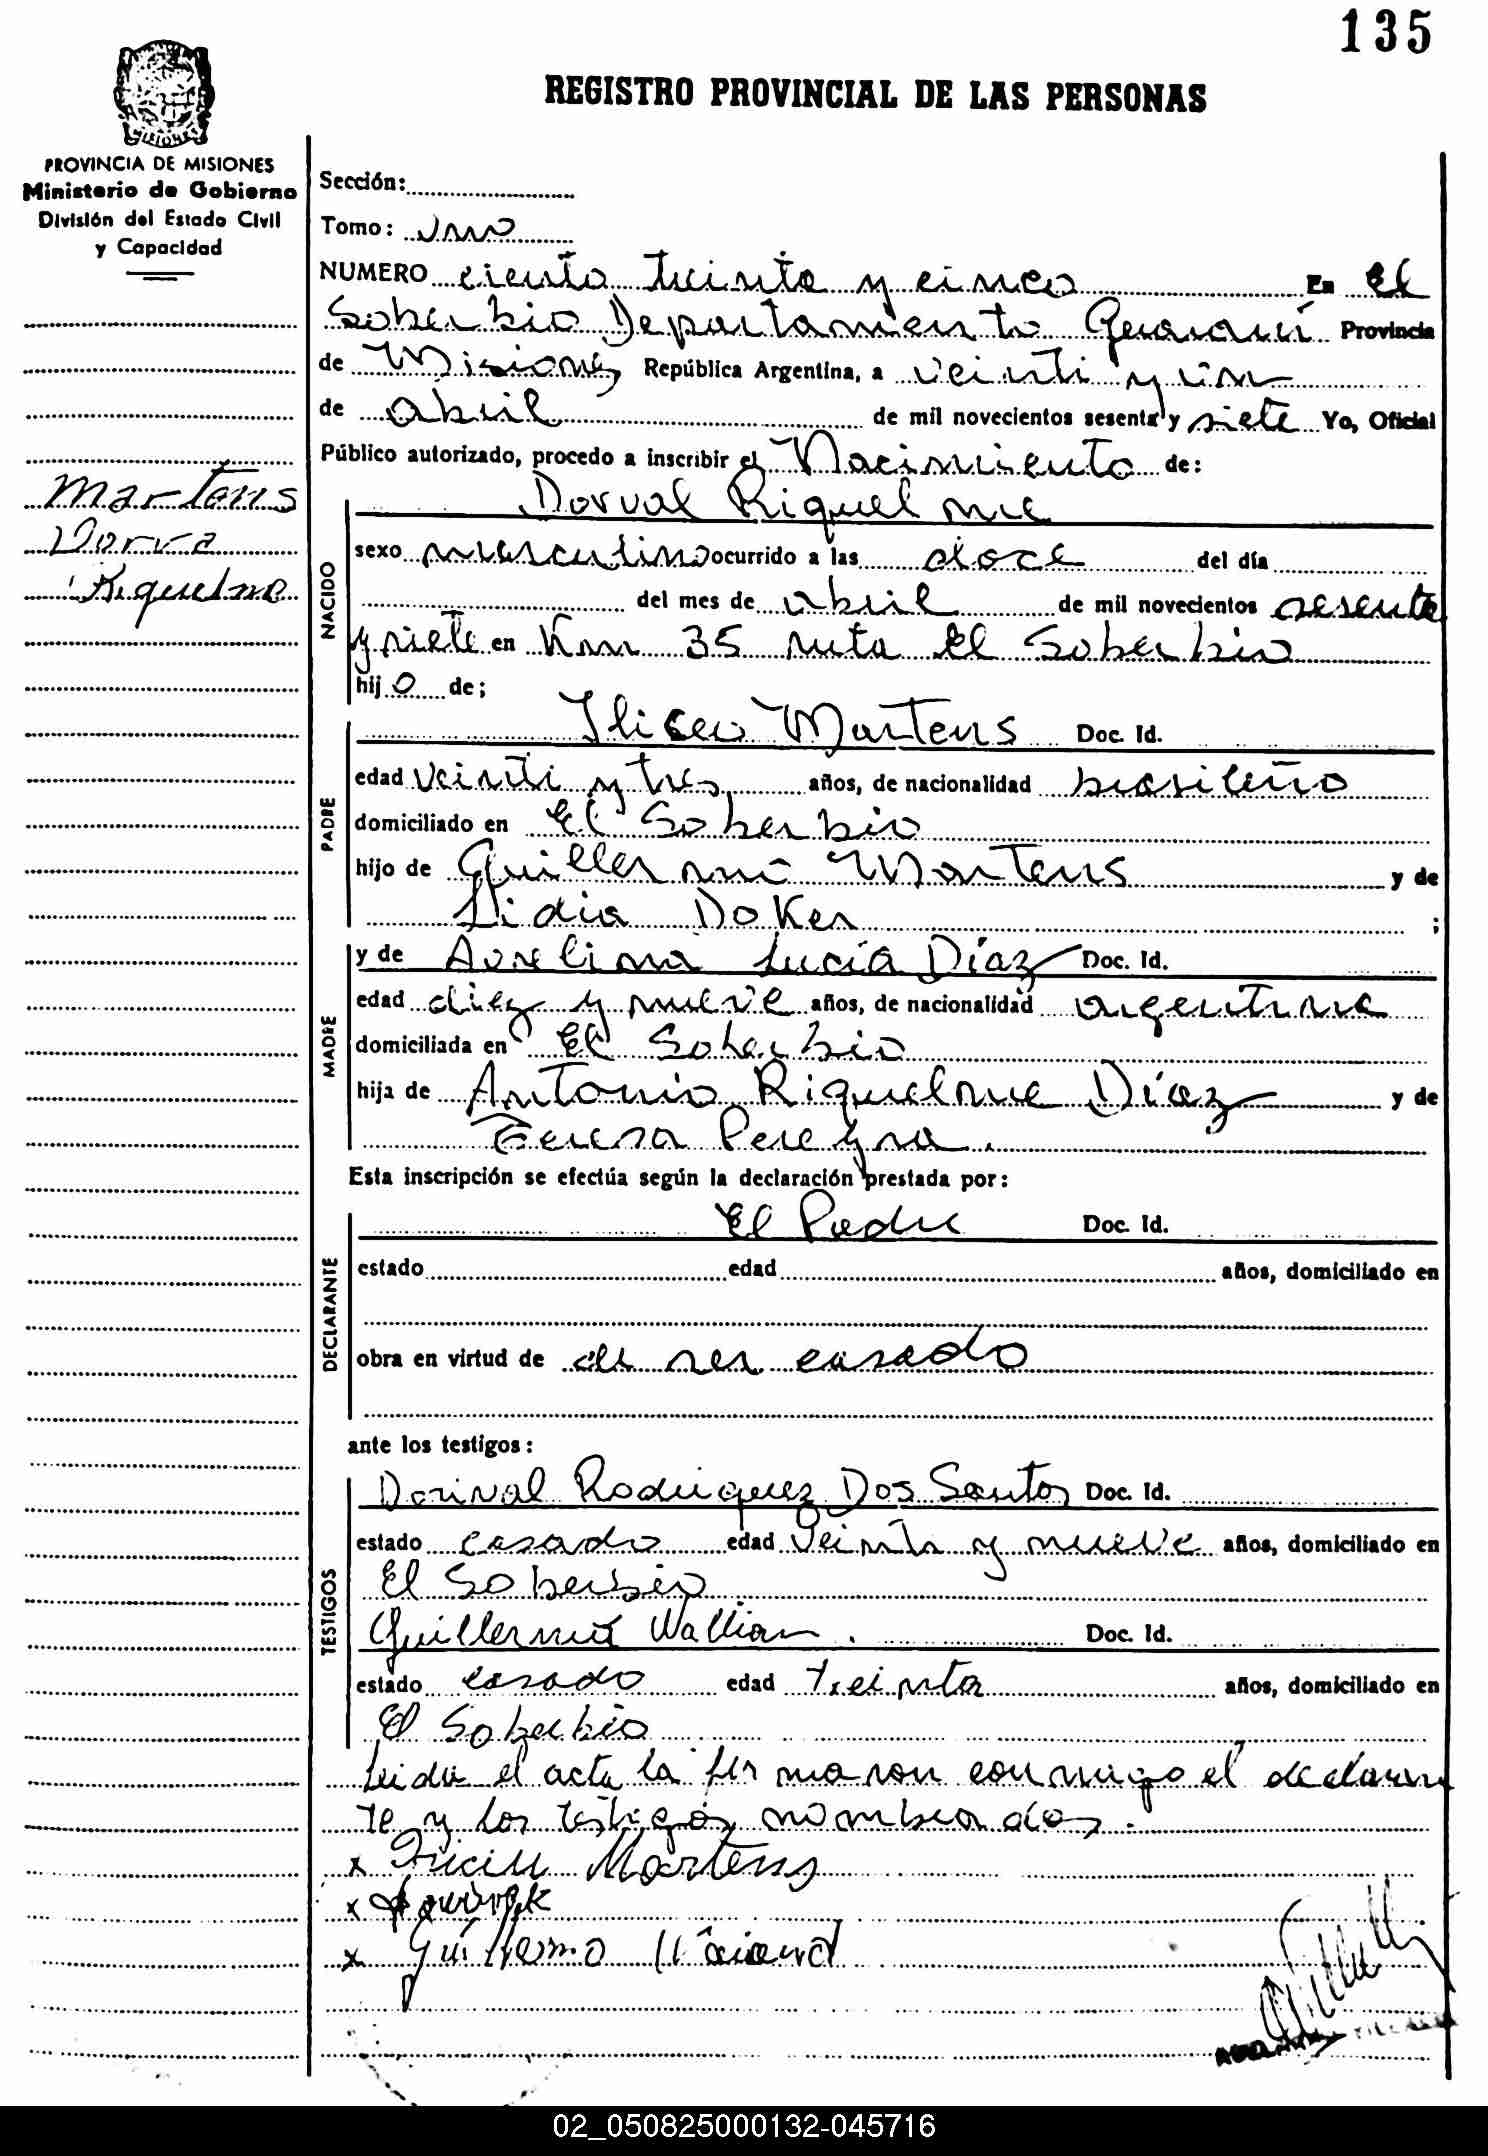 135
REGISTRO PROVINCIAL DE LAS PERSONAS
PROVINCIA DE MISIONES
Ministerio de Gobierno
División del Estado Civil
y Capacidad
Martens
Dorval
Riquelme
Sección:
Tomo: Uno
NUMERO ciento treinta y cinco En El
Soberbio Departamento Guaraní Provincia
de Misiones República Argentina, a veinti y un
de abril de mil novecientos sesenta y siete Yo, Oficial
Público autorizado, procedo a inscribir el Nacimiento de:
Dorval Riquelme
NACIDO
sexo masculino ocurrido a las doce del día
del mes de abril de mil novecientos sesenta
y siete en Km 35 ruta El Soberbio
hijo de;
PADRE
Martens Doc. Id.
edad veinti y tres años, de nacionalidad brasileño
domiciliado en El Soberbio
hijo de Guillermo Martens y de
Lidia Doker ;
MADRE
y de Aurelina Lucía Díaz Doc. Id.
edad diez y nueve años, de nacionalidad argentina
domiciliada en El Soberbio
hija de Antonio Riquelme Díaz y de
Teresa Pereyra.
Esta inscripción se efectúa según la declaración prestada por:
DECLARANTE
El Padre Doc. Id.
estado edad años, domiciliado en
obra en virtud de de ser casado
ante los testigos:
TESTIGOS
Dorival Rodriguez Dos Santos Doc. Id.
estado casado edad Veinti y nueve años, domiciliado en
El Soberbio
Guillermo Doc. Id.
estado casado edad treinta años, domiciliado en
El Soberbio
Leida el acta la firmaron conmigo el declaran
te y los testigos nombrados.
x Martens
x
x Guillermo
02_050825000132-045716